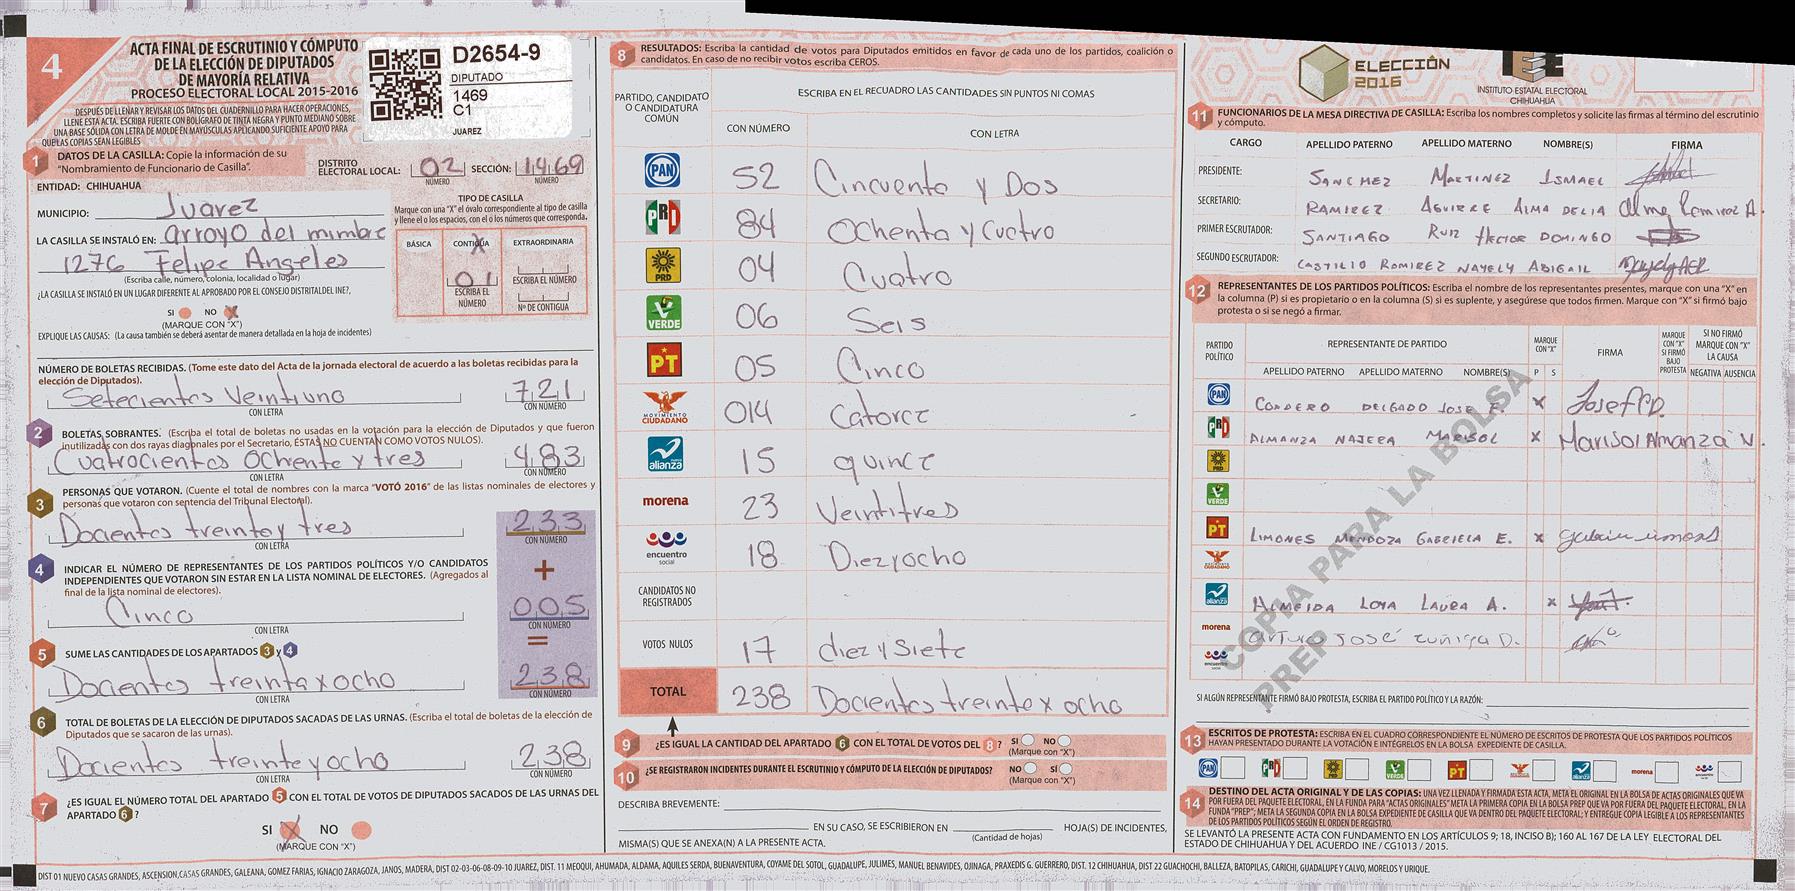 4
ACTA FINAL DE ESCRUTINIO Y CÓMPUTO
DE LA ELECCIÓN DE DIPUTADOS
DE MAYORÍA RELATIVA
PROCESO ELECTORAL LOCAL 2015-2016
DESPUÉS DE LLENAR Y REVISAR LOS DATOS DEL CUADERNILLO PARA HACER OPERACIONES,
LLENE ESTA ACTA. ESCRIBA FUERTE CON BOLÍGRAFO DE TINTA NEGRA Y PUNTO MEDIANO SOBRE
UNA BASE SÓLIDA CON LETRA DE MOLDE EN MAYÚSCULAS APLICANDO SUFICIENTE APOYO PARA
QUE LAS COPIAS SEAN LEGIBLES
D2654-9
DIPUTADO
1469
C1
JUAREZ
1 DATOS DE LA CASILLA: Copie la información de su
"Nombramiento de Funcionario de Casilla".
DISTRITO
ELECTORAL LOCAL: 02 SECCIÓN: 1469
NÚMERO NÚMERO
ENTIDAD: CHIHUAHUA
MUNICIPIO: Juarez
LA CASILLA SE INSTALÓ EN: arroyo del mimbre
1276 Felipe Angeles
(Escriba calle, número, colonia, localidad o lugar)
¿LA CASILLA SE INSTALÓ EN UN LUGAR DIFERENTE AL APROBADO POR EL CONSEJO DISTRITAL DEL INE?,
SI NO X
(MARQUE CON "X")
EXPLIQUE LAS CAUSAS: (La causa también se deberá asentar de manera detallada en la hoja de incidentes)
TIPO DE CASILLA
Marque con una "X" el óvalo correspondiente al tipo de casilla
y llene el o los espacios, con el o los números que corresponda.
BÁSICA CONTIGUA EXTRAORDINARIA
X
01
ESCRIBA EL NÚMERO
ESCRIBA EL NÚMERO
Nº DE CONTIGUA
NÚMERO DE BOLETAS RECIBIDAS. (Tome este dato del Acta de la jornada electoral de acuerdo a las boletas recibidas para la
elección de Diputados).
Setecientos Veintiuno 721
CON LETRA CON NÚMERO
2 BOLETAS SOBRANTES. (Escriba el total de boletas no usadas en la votación para la elección de Diputados y que fueron
inutilizadas con dos rayas diagonales por el Secretario, ÉSTAS NO CUENTAN COMO VOTOS NULOS).
Cuatrocientos Ochente y tres 483
CON LETRA CON NÚMERO
3 PERSONAS QUE VOTARON. (Cuente el total de nombres con la marca "VOTÓ 2016" de las listas nominales de electores y
personas que votaron con sentencia del Tribunal Electoral).
Docientos treinta y tres 233
CON LETRA CON NÚMERO
+
4 INDICAR EL NÚMERO DE REPRESENTANTES DE LOS PARTIDOS POLÍTICOS Y/O CANDIDATOS
INDEPENDIENTES QUE VOTARON SIN ESTAR EN LA LISTA NOMINAL DE ELECTORES. (Agregados al
final de la lista nominal de electores).
Cinco 005
CON LETRA CON NÚMERO
=
5 SUME LAS CANTIDADES DE LOS APARTADOS 3 y 4
Docientos treinta x ocho 238
CON LETRA CON NÚMERO
6 TOTAL DE BOLETAS DE LA ELECCIÓN DE DIPUTADOS SACADAS DE LAS URNAS. (Escriba el total de boletas de la elección de
Diputados que se sacaron de las urnas).
Docientos treinte y ocho 238
CON LETRA CON NÚMERO
7 ¿ES IGUAL EL NÚMERO TOTAL DEL APARTADO 5 CON EL TOTAL DE VOTOS DE DIPUTADOS SACADOS DE LAS URNAS DEL
APARTADO 6 ?
SI X NO
(MARQUE CON "X")
8 RESULTADOS: Escriba la cantidad de votos para Diputados emitidos en favor de cada uno de los partidos, coalición o
candidatos. En caso de no recibir votos escriba CEROS.
PARTIDO, CANDIDATO
O CANDIDATURA
COMÚN
ESCRIBA EN EL RECUADRO LAS CANTIDADES SIN PUNTOS NI COMAS
CON NÚMERO CON LETRA
PAN 52 Cincuenta y Dos
PRI 84 Ochenta y Cuatro
PRD 04 Cuatro
VERDE 06 Seis
PT 05 Cinco
MOVIMIENTO CIUDADANO 014 Catorce
alianza 15 quince
morena 23 Veintitres
encuentro social 18 Diezyocho
CANDIDATOS NO
REGISTRADOS
VOTOS NULOS 17 diez y Siete
TOTAL 238 Docientos treinte x ocho
9 ¿ES IGUAL LA CANTIDAD DEL APARTADO 6 CON EL TOTAL DE VOTOS DEL 8 ? SI NO
(Marque con "X")
10 ¿SE REGISTRARON INCIDENTES DURANTE EL ESCRUTINIO Y CÓMPUTO DE LA ELECCIÓN DE DIPUTADOS? NO SI
(Marque con "X")
DESCRIBA BREVEMENTE:
EN SU CASO, SE ESCRIBIERON EN HOJA(S) DE INCIDENTES,
(Cantidad de hojas)
MISMA(S) QUE SE ANEXA(N) A LA PRESENTE ACTA.
ELECCIÓN
2016
IEE
INSTITUTO ESTATAL ELECTORAL
CHIHUAHUA
11 FUNCIONARIOS DE LA MESA DIRECTIVA DE CASILLA: Escriba los nombres completos y solicite las firmas al término del escrutinio
y cómputo.
CARGO APELLIDO PATERNO APELLIDO MATERNO NOMBRE(S) FIRMA
PRESIDENTE: SANCHEZ MARTINEZ ISMAEL
SECRETARIO: RAMIREZ AGUIRRE ALMA DELIA Alma Ramirez A.
PRIMER ESCRUTADOR: SANTIAGO RUIZ HECTOR DOMINGO
SEGUNDO ESCRUTADOR: CASTILLO RAMIREZ NAYELY ABIGAIL
12 REPRESENTANTES DE LOS PARTIDOS POLÍTICOS: Escriba el nombre de los representantes presentes, marque con una "X" en
la columna (P) si es propietario o en la columna (S) si es suplente, y asegúrese que todos firmen. Marque con "X" si firmó bajo
protesta o si se negó a firmar.
PARTIDO
POLÍTICO
REPRESENTANTE DE PARTIDO
MARQUE
CON "X"
FIRMA
MARQUE
CON "X"
SI FIRMÓ
BAJO
PROTESTA
SI NO FIRMÓ
MARQUE CON "X"
LA CAUSA
APELLIDO PATERNO APELLIDO MATERNO NOMBRE(S) P S NEGATIVA AUSENCIA
PAN CORDERO DELGADO JOSE F. X
PRI ALMANZA NAJERA MARISOL X Marisol Almanza N.
PRD
VERDE
PT LIMONES MENDOZA GABRIELA E. X
MOVIMIENTO CIUDADANO
alianza ALMEIDA LOYA LAURA A. X
morena arturo JOSÉ zuñiga D.
encuentro social
COPIA PARA LA BOLSA
PREP
SI ALGÚN REPRESENTANTE FIRMÓ BAJO PROTESTA, ESCRIBA EL PARTIDO POLÍTICO Y LA RAZÓN:
13 ESCRITOS DE PROTESTA: ESCRIBA EN EL CUADRO CORRESPONDIENTE EL NÚMERO DE ESCRITOS DE PROTESTA QUE LOS PARTIDOS POLÍTICOS
HAYAN PRESENTADO DURANTE LA VOTACIÓN E INTÉGRELOS EN LA BOLSA EXPEDIENTE DE CASILLA.
PAN PRI PRD VERDE PT MOVIMIENTO CIUDADANO alianza morena encuentro social
14 DESTINO DEL ACTA ORIGINAL Y DE LAS COPIAS: UNA VEZ LLENADA Y FIRMADA ESTA ACTA, META EL ORIGINAL EN LA BOLSA DE ACTAS ORIGINALES QUE VA
POR FUERA DEL PAQUETE ELECTORAL, EN LA FUNDA PARA "ACTAS ORIGINALES" META LA PRIMERA COPIA EN LA BOLSA PREP QUE VA POR FUERA DEL PAQUETE ELECTORAL, EN LA
FUNDA "PREP"; META LA SEGUNDA COPIA EN LA BOLSA EXPEDIENTE DE CASILLA QUE VA DENTRO DEL PAQUETE ELECTORAL; Y ENTREGUE COPIA LEGIBLE A LOS REPRESENTANTES
DE LOS PARTIDOS POLÍTICOS SEGÚN EL ORDEN DE REGISTRO.
SE LEVANTÓ LA PRESENTE ACTA CON FUNDAMENTO EN LOS ARTÍCULOS 9; 18, INCISO B); 160 AL 167 DE LA LEY ELECTORAL DEL
ESTADO DE CHIHUAHUA Y DEL ACUERDO INE / CG1013 / 2015.
DIST 01 NUEVO CASAS GRANDES, ASCENSION, CASAS GRANDES, GALEANA, GOMEZ FARIAS, IGNACIO ZARAGOZA, JANOS, MADERA, DIST 02-03-06-08-09-10 JUAREZ, DIST. 11 MEOQUI, AHUMADA, ALDAMA, AQUILES SERDA, BUENAVENTURA, COYAME DEL SOTOL, GUADALUPE, JULIMES, MANUEL BENAVIDES, OJINAGA, PRAXEDIS G. GUERRERO, DIST. 12 CHIHUAHUA, DIST 22 GUACHOCHI, BALLEZA, BATOPILAS, CARICHI, GUADALUPE Y CALVO, MORELOS Y URIQUE.